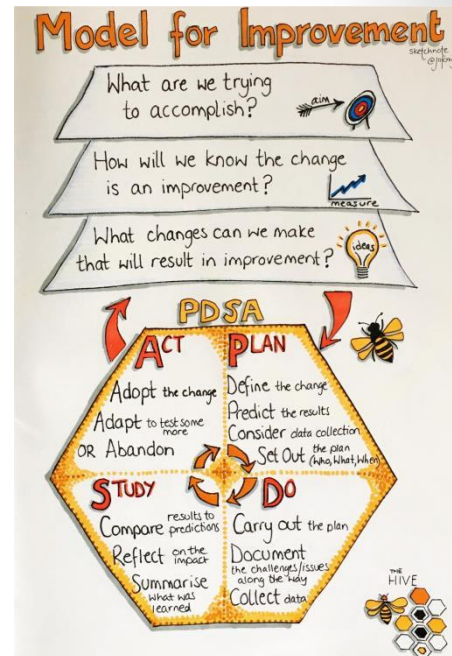 Model for Improvement
sketchnote
What are we trying
to accomplish?
aim
How will we know the change
is an improvement?
measure
What changes can we make
that will result in improvement?
ideas
PDSA
ACT
Adopt the change
Adapt to test some
more
OR Abandon
PLAN
Define the change
Predict the results
Consider data collection
Set Out the plan
(Who, What, When)
STUDY
Compare results to
predictions
Reflect on the
impact
Summarise
what was
learned
DO
Carry out the plan
Document
the challenges/issues
along the way
Collect data
THE
HIVE